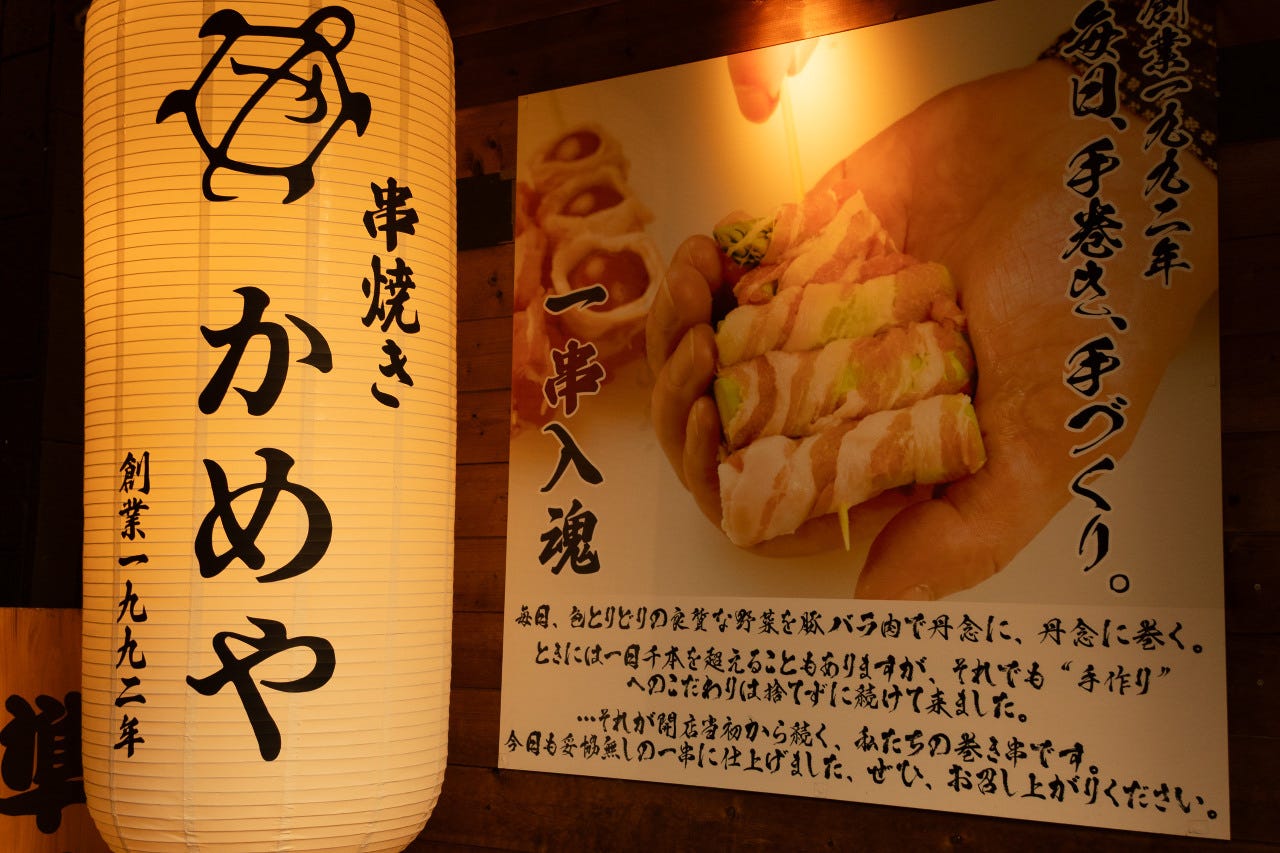 串焼き
かめや
創業一九九二年
創業一九九二年
毎日、手巻き、手づくり。
一串入魂
毎日、色とりどりの良質な野菜を豚バラ肉で丹念に、丹念に巻く。
ときには一日千本を超えることもありますが、それでも“手作り”
へのこだわりは捨てずに続けて来ました。
…それが開店当初から続く、私たちの巻き串です。
今日も妥協無しの一串に仕上げました、ぜひ、お召し上がりください。
準